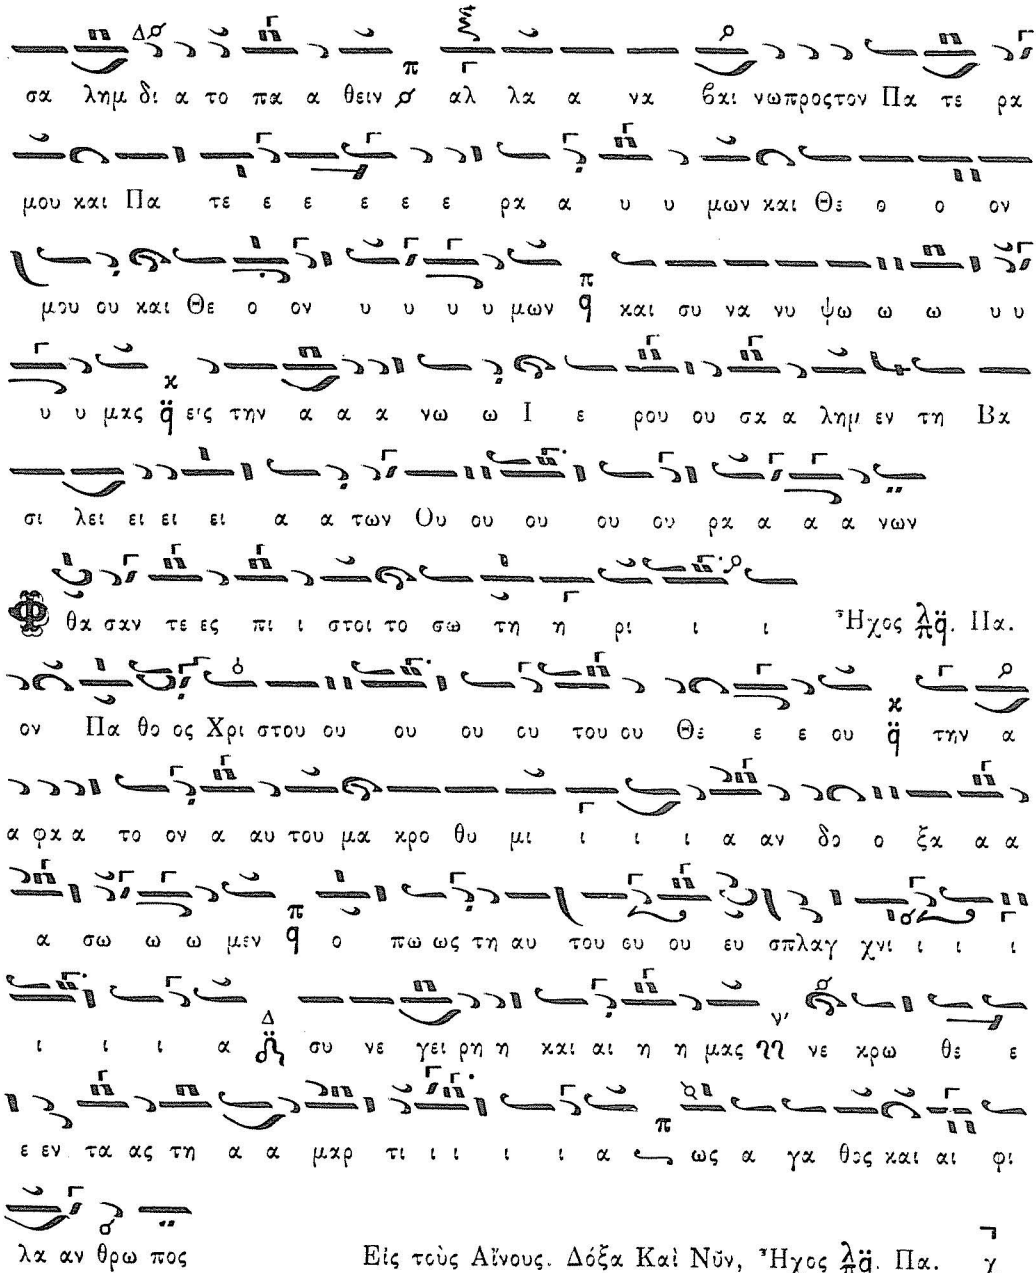 σα λημ δι α το πα α θειν αλ λα α να βαι νωπροςτον Πα τε ρα
μου και Πα τε ε ε ε ε ε ρα α υ υ μων και Θε ο ο ον
μου ου και Θε ο ον υ υ υ υ μων και συ να νυ ψω ω ω υ υ
υ υ μας εις την α α α νω ω Ι ε ρου ου σα α λημ εν τη Βα
σι λει ει ει ει α α των Ου ου ου ου ου ρα α α α νων
Φ θα σαν τε ες πι ι στοι το σω τη η ρι ι ι Ἦχος λ/π q̈. Πα.
ον Πα θο ος Χρι στου ου ου ου ου του ου Θε ε ε ου την α
α φα α το ον α αυ του μα κρο θυ μι ι ι ι α αν δο ο ξα α α
α σω ω ω μεν ο πω ως τη αυ του ευ ου ευ σπλαγ χνι ι ι ι
ι ι ι α συ νε γει ρη η και αι η η μας νε κρω θε ε
ε εν τα ας τη α α μαρ τι ι ι ι ι α ως α γα θος και αι φι
λα αν θρω πος Εἰς τοὺς Αἴνους. Δόξα Καὶ Νῦν, Ἦχος λ/π q̈. Πα. γ